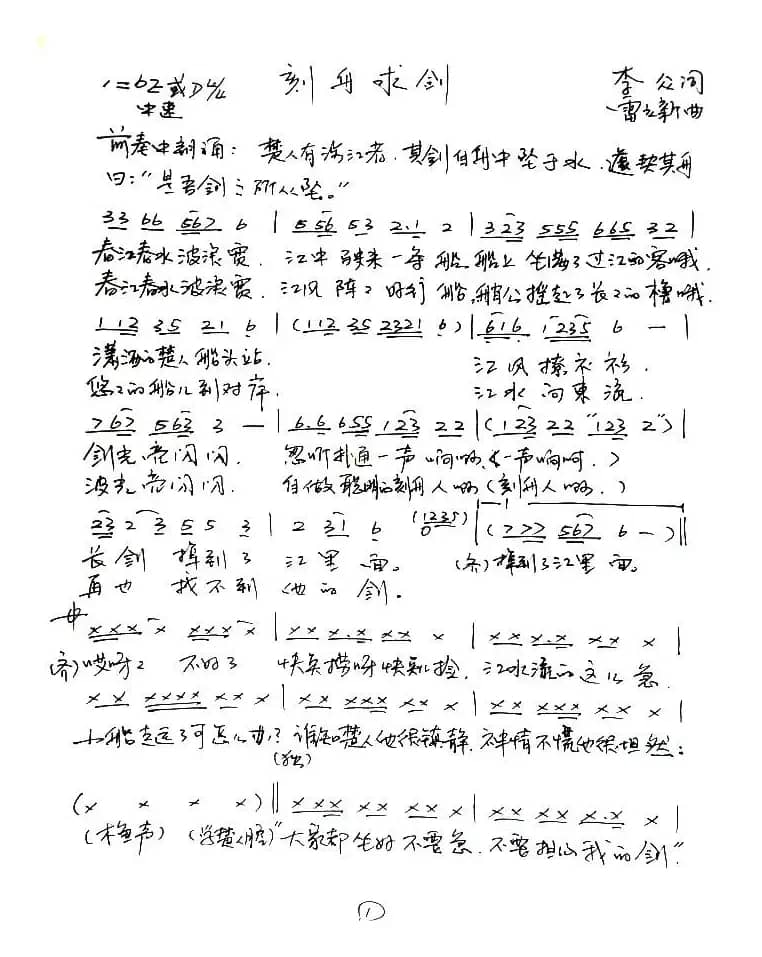 刻舟求剑
1=bE或D 4/4
中速
李众词
雷立新曲
前奏中朗诵：楚人有涉江者，其剑自舟中坠于水，遽契其舟
曰：“是吾剑之所从坠。”
33 66 567 6 | 5 56 53 2.1 2 | 323 555 665 32 |
春江春水波浪宽，江中驶来一条船，船上坐满了过江的客哦，
春江春水波浪宽，江风阵阵好行船，艄公摇起了长长的橹哦，
112 35 21 6 | (112 35 2321 6) | 616 1235 6 — |
潇洒的楚人船头站， 江风撩衣衫，
悠悠的船儿到对岸， 江水向東流，
767 563 3 — | 6.6 655 123 22 | (123 22 "123 2") |
剑光亮闪闪， 忽听扑通一声响啊，(一声响啊，)
波光亮闪闪， 自做聪明的刻舟人啊(刻舟人啊，)
23 2 3 5 5 3 | 2 31 6 (1235) 0 | (777 567 6 — ) ‖
长剑掉到了江里面。 (齐)掉到了江里面。
再也找不到他的剑。
xxx x xxx x | xx x.x xx x | xx x.x xx x |
(齐)哎呀呀 不好了 快点捞呀快点捡，江水流的这么急，
xx xxxx xx x | xx xxx xx x | xx xxx xx x |
小船走远了可怎么办？谁知楚人他很镇静，神情不慌他很坦然：
(独)
(x x x x) ‖ xxx xx xx x | xx xx x.x x |
(木鱼声) (学楚人腔)“大家都坐好不要急，不要担心我的剑”
1